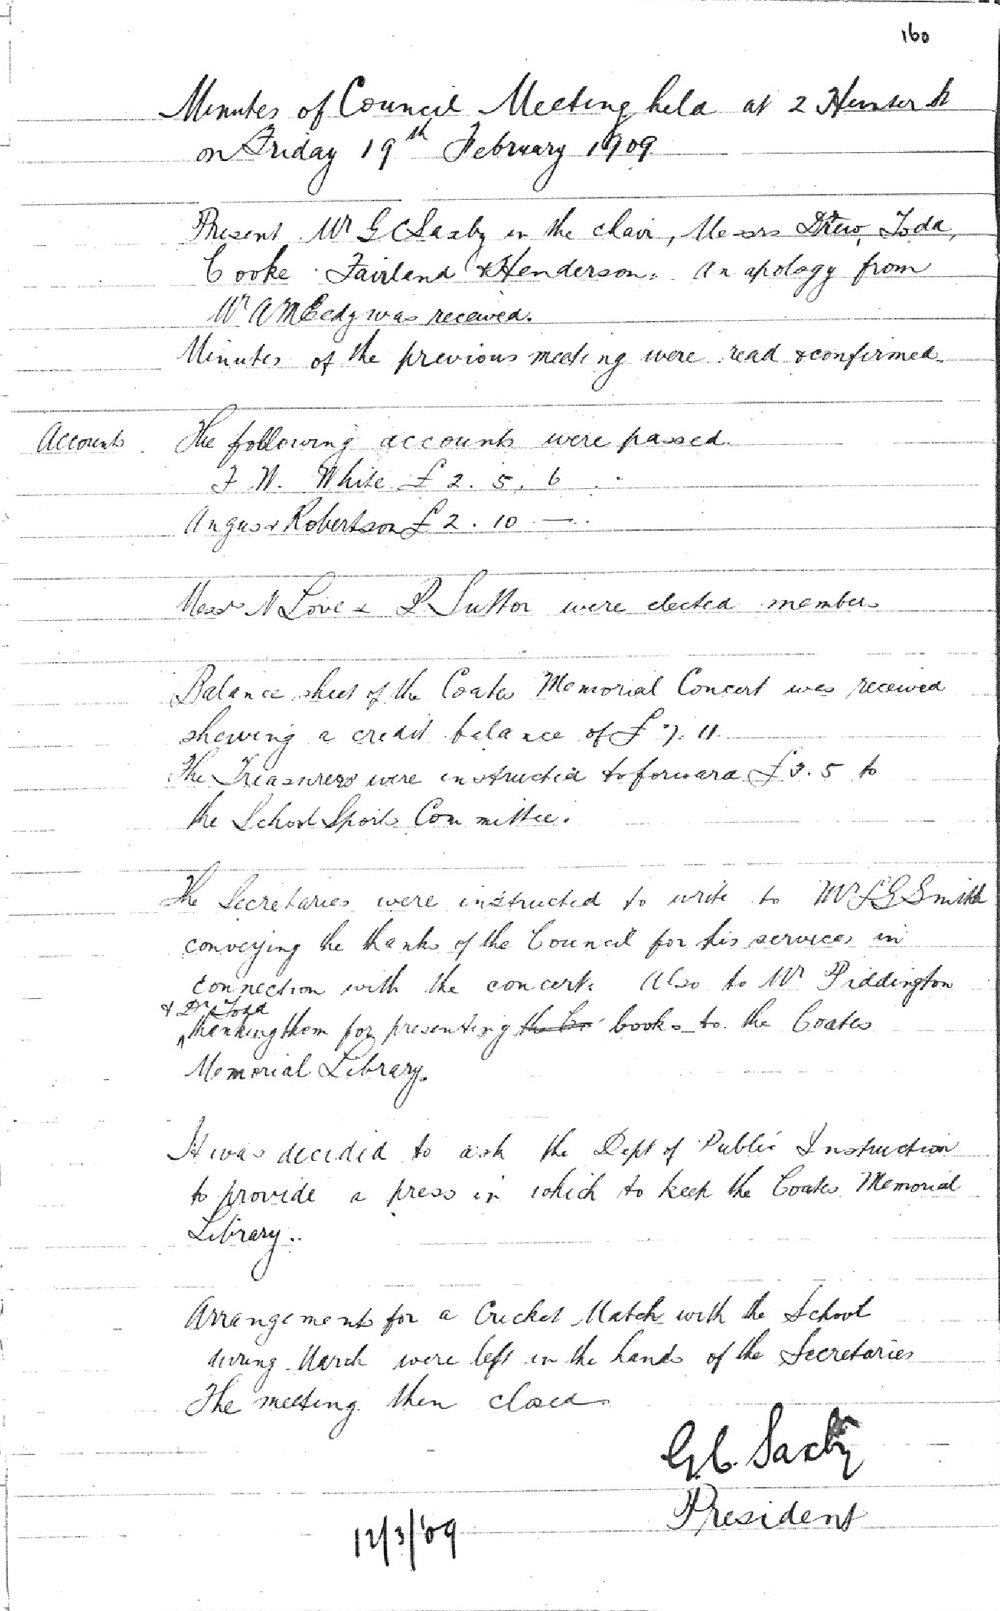 160
Minutes of Council Meeting held at 2 Hunter St
on Friday 19th February 1909
Present Mr G C Saxby in the chair, Messrs Drew, Todd,
Cooke Fairland & Henderson. An apology from
Mr A M Eedy was received.
Minutes of the previous meeting were read & confirmed.
Accounts. The following accounts were passed.
F. W. White £2. 5. 6
Angus & Robertson £2. 10 —
Messrs N Love & R Suttor were elected members
Balance sheet of the Coates Memorial Concert was received
shewing a credit balance of £7. 11.
The Treasurers were instructed to forward £3. 5 to
the School Sports Committee.
The Secretaries were instructed to write to Mr L G Smith
conveying the thanks of the Council for his services in
connection with the concert. Also to Mr Piddington
& Dr Todd
thanking them for presenting the Co books to the Coates
Memorial Library.
It was decided to ask the Dept of Public Instruction
to provide a press in which to keep the Coates Memorial
Library.
Arrangements for a Cricket Match with the School
during March were left in the hands of the Secretaries
The meeting then closed.
G. C. Saxby
President
12/3/09